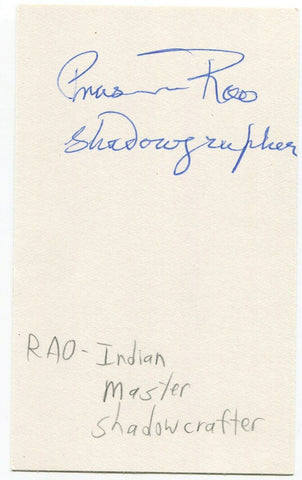 Rao
Shadowgrapher
RAO - Indian
Master
Shadowcrafter